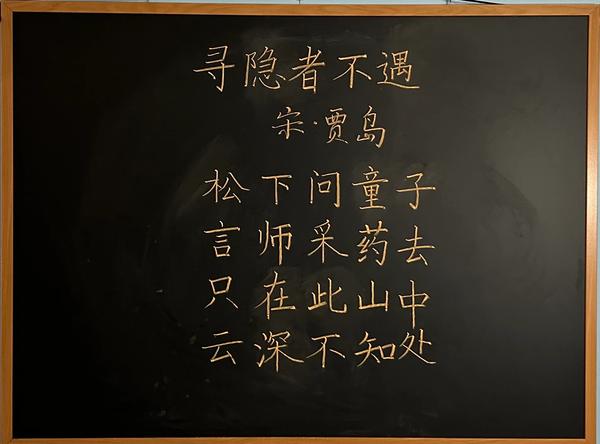 寻隐者不遇
宋·贾岛
松下问童子
言师采药去
只在此山中
云深不知处